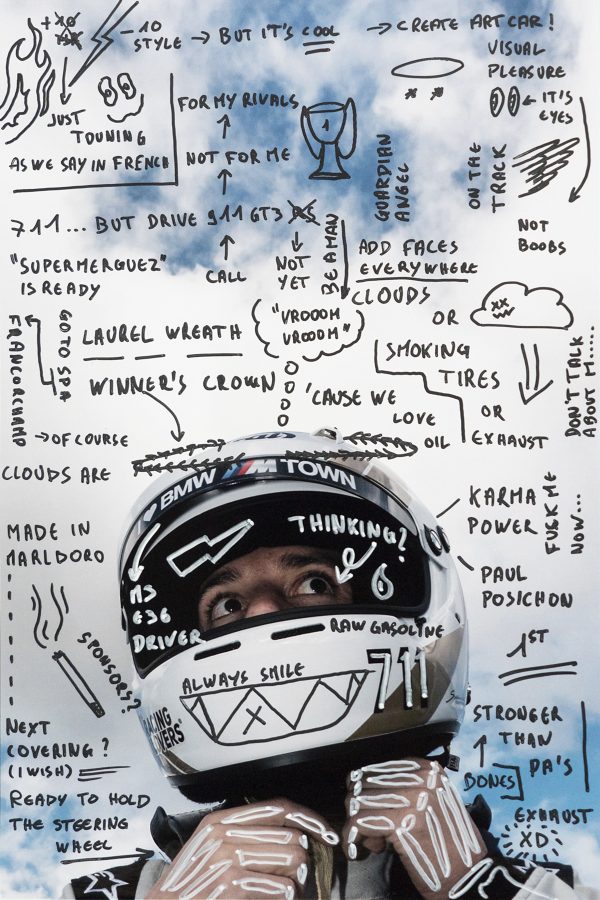 +10
-10
STYLE → BUT IT'S COOL → CREATE ART CAR!
VISUAL
PLEASURE
← IT'S
EYES
JUST
TOUNING
AS WE SAY IN FRENCH
FOR MY RIVALS
NOT FOR ME
1
GUARDIAN
ANGEL
ON THE
TRACK
NOT
BOOBS
711... BUT DRIVE 911 GT3 RS
"SUPERMERGUEZ"
IS READY
CALL
NOT
YET
BE A MAN
ADD FACES
EVERYWHERE
CLOUDS
OR
"VROOOM
VROOOM"
GO TO SPA
FRANCORCHAMP
LAUREL WREATH
WINNER'S CROWN
SMOKING
TIRES
OR
EXHAUST
DON'T TALK
ABOUT M.....
'CAUSE WE
LOVE
OIL
→ OF COURSE
CLOUDS ARE
MADE IN
MARLBORO
BMW M TOWN
THINKING?
M3
E36
DRIVER
RAW GASOLINE
KARMA
POWER
FUCK ME
NOW...
PAUL
POSICHON
ALWAYS SMILE
711
1ST
SPONSORS?
NEXT
COVERING?
(I WISH)
STRONGER
THAN
PA'S
BONES
EXHAUST
XD
READY TO HOLD
THE STEERING
WHEEL